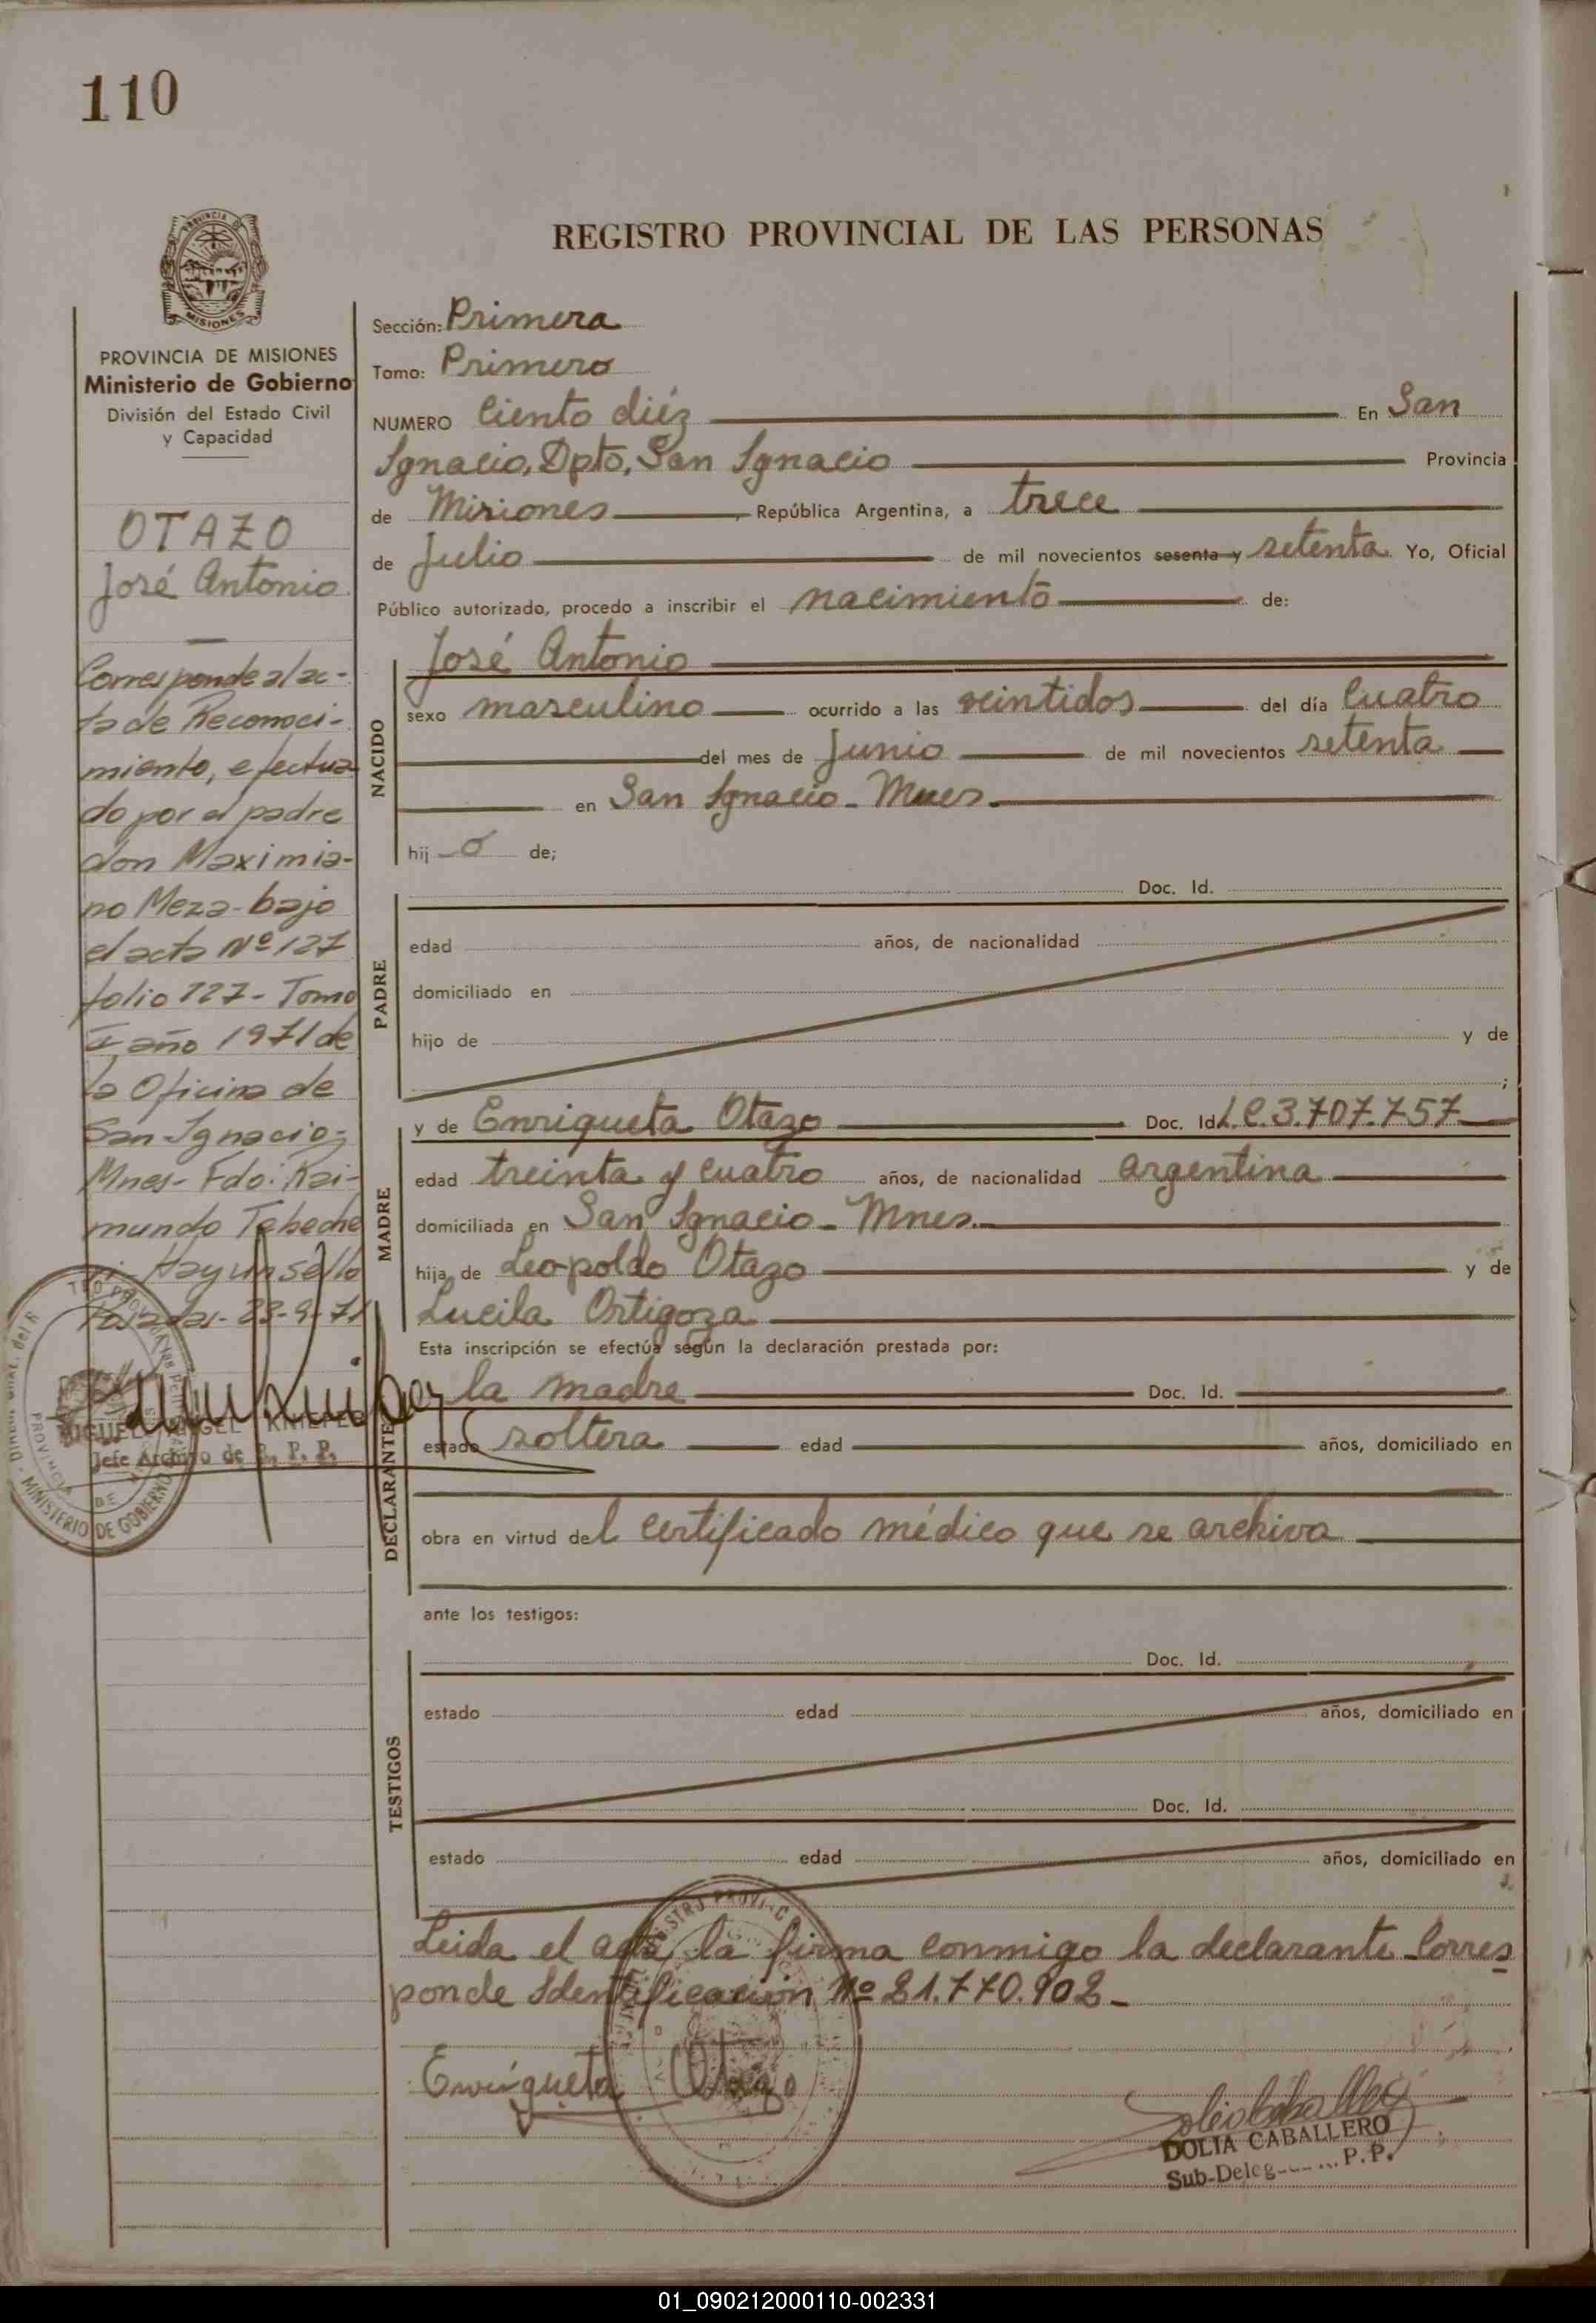 110
REGISTRO PROVINCIAL DE LAS PERSONAS
MISIONES
PROVINCIA DE MISIONES
Ministerio de Gobierno
División del Estado Civil
y Capacidad
OTAZO
José Antonio
Corresponde al ac-
ta de Reconoci-
miento, efectua
do por el padre
don Maximia-
no Meza-bajo
el acta Nº 127
folio 127- Tomo
I año 1971 de
la Oficina de
San Ignacio-
Mnes- Fdo: Rai-
mundo
Hay un sello
Posadas- -9-71
MIGUEL ANGEL
Jefe Archivo de R. P. P.
Sección: Primera
Tomo: Primero
NUMERO Ciento diéz En San
Ignacio, Dpto, San Ignacio Provincia
de Misiones, República Argentina, a trece
de Julio de mil novecientos sesenta y setenta Yo, Oficial
Público autorizado, procedo a inscribir el nacimiento de:
NACIDO
José Antonio
sexo masculino ocurrido a las veintidos del día Cuatro
del mes de Junio de mil novecientos setenta
en San Ignacio - Mnes.
hij o de;
PADRE
Doc. Id.
edad años, de nacionalidad
domiciliado en
hijo de y de
;
MADRE
y de Enriqueta Otazo Doc. Id. L.C. 3.707.757
edad treinta y cuatro años, de nacionalidad argentina
domiciliada en San Ignacio - Mnes.
hija de Leopoldo Otazo y de
Lucila Ortigoza
Esta inscripción se efectúa según la declaración prestada por:
DECLARANTE
la madre Doc. Id.
estado soltera edad años, domiciliado en
obra en virtud del certificado médico que se archiva
ante los testigos:
TESTIGOS
Doc. Id.
estado edad años, domiciliado en
Doc. Id.
estado edad años, domiciliado en
Leida el acta, la firma conmigo la declarante Corres
ponde Identificación Nº 21.770.902-
Enriqueta Otazo
DOLIA CABALLERO
Sub-Deleg P.P.
01_090212000110-002331